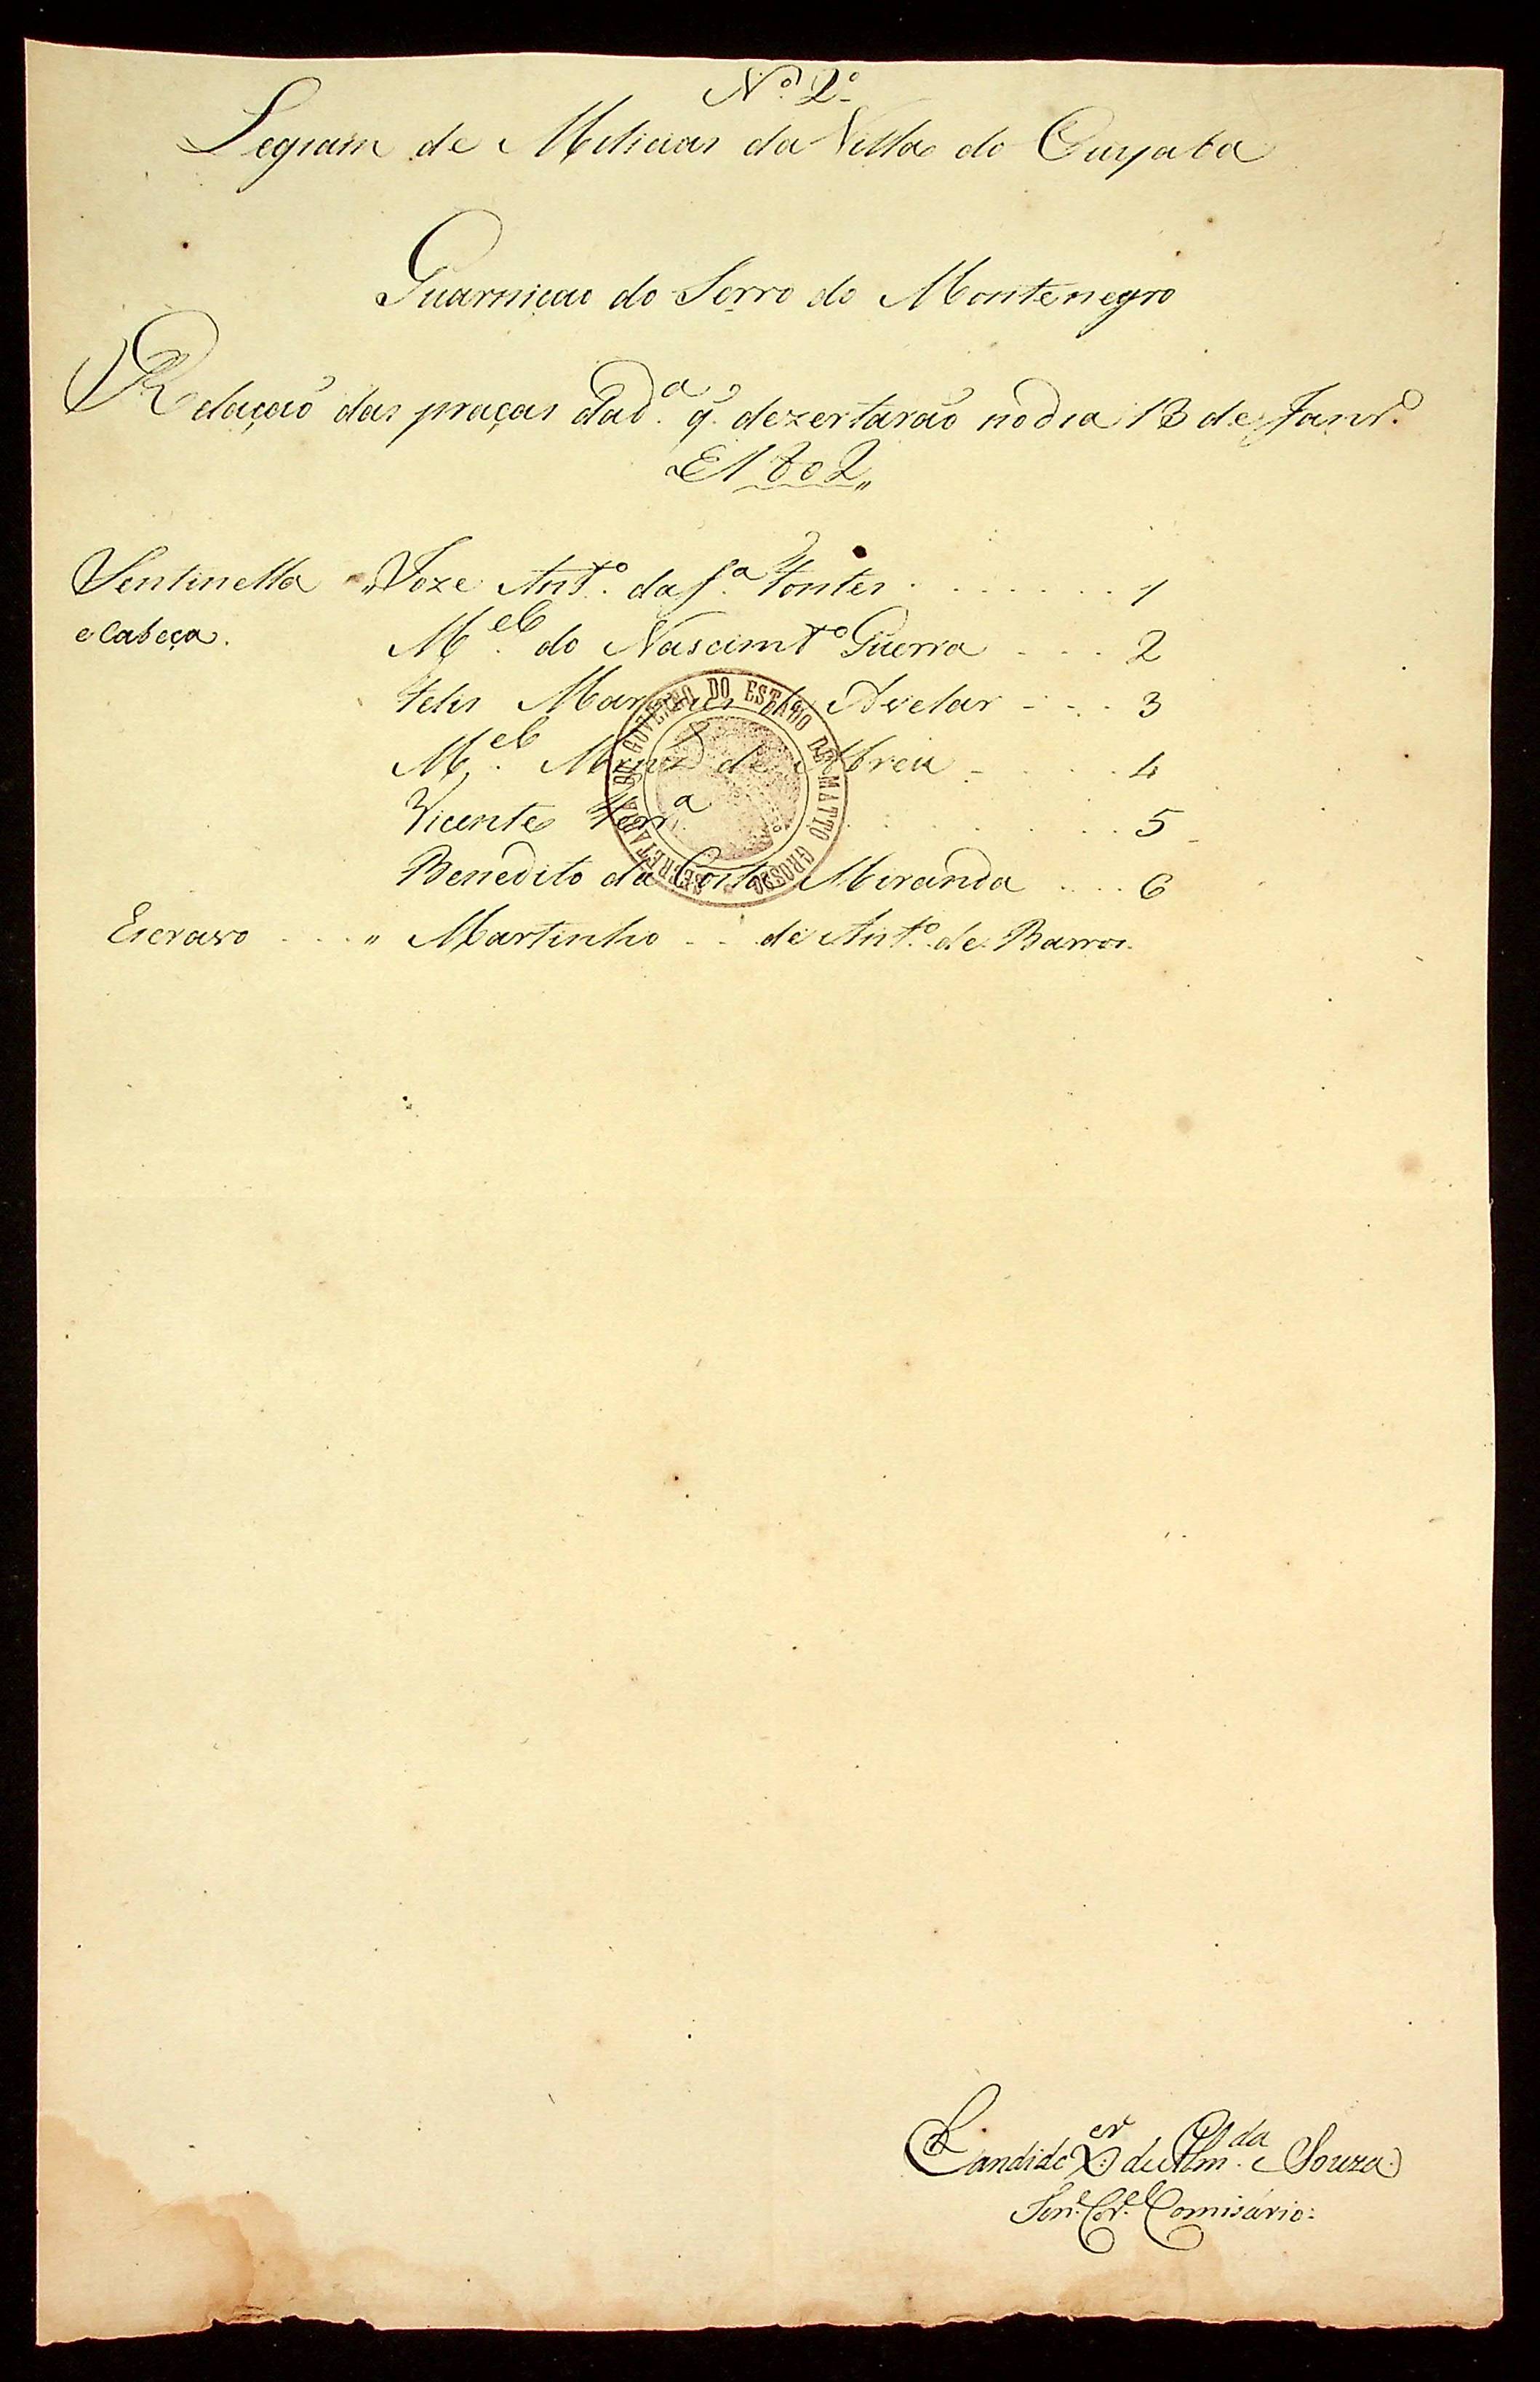 N.º 2.º
Legiam de Milicias da Villa do Cuyaba
Guarnicao do Serro do Montenegro
Relaçaõ das praças dad.ª q. dezertaraõ no dia 13 de Janr.º
E 1802,,
Sentinella ,, Joze Ant.º da S.ª Fontes . . . . . . . 1
e Cabeça.
M.el do Nascimtº Guerra . . . 2
Felis Marques de Avelar . . . 3
M.el de Abreu . . . . 4
Vicente Ferr.ª . . . . . . . 5
Benedito da Costa Miranda . . . 6
Escravo . . . ,, Martinho . . de Ant.º de Barros.
SECRETARIA DO GOVERNO DO ESTADO DE MATTO GROSSO
Candido X.er de Alm.da e Souza
Ten.e Cor.el Comisário: